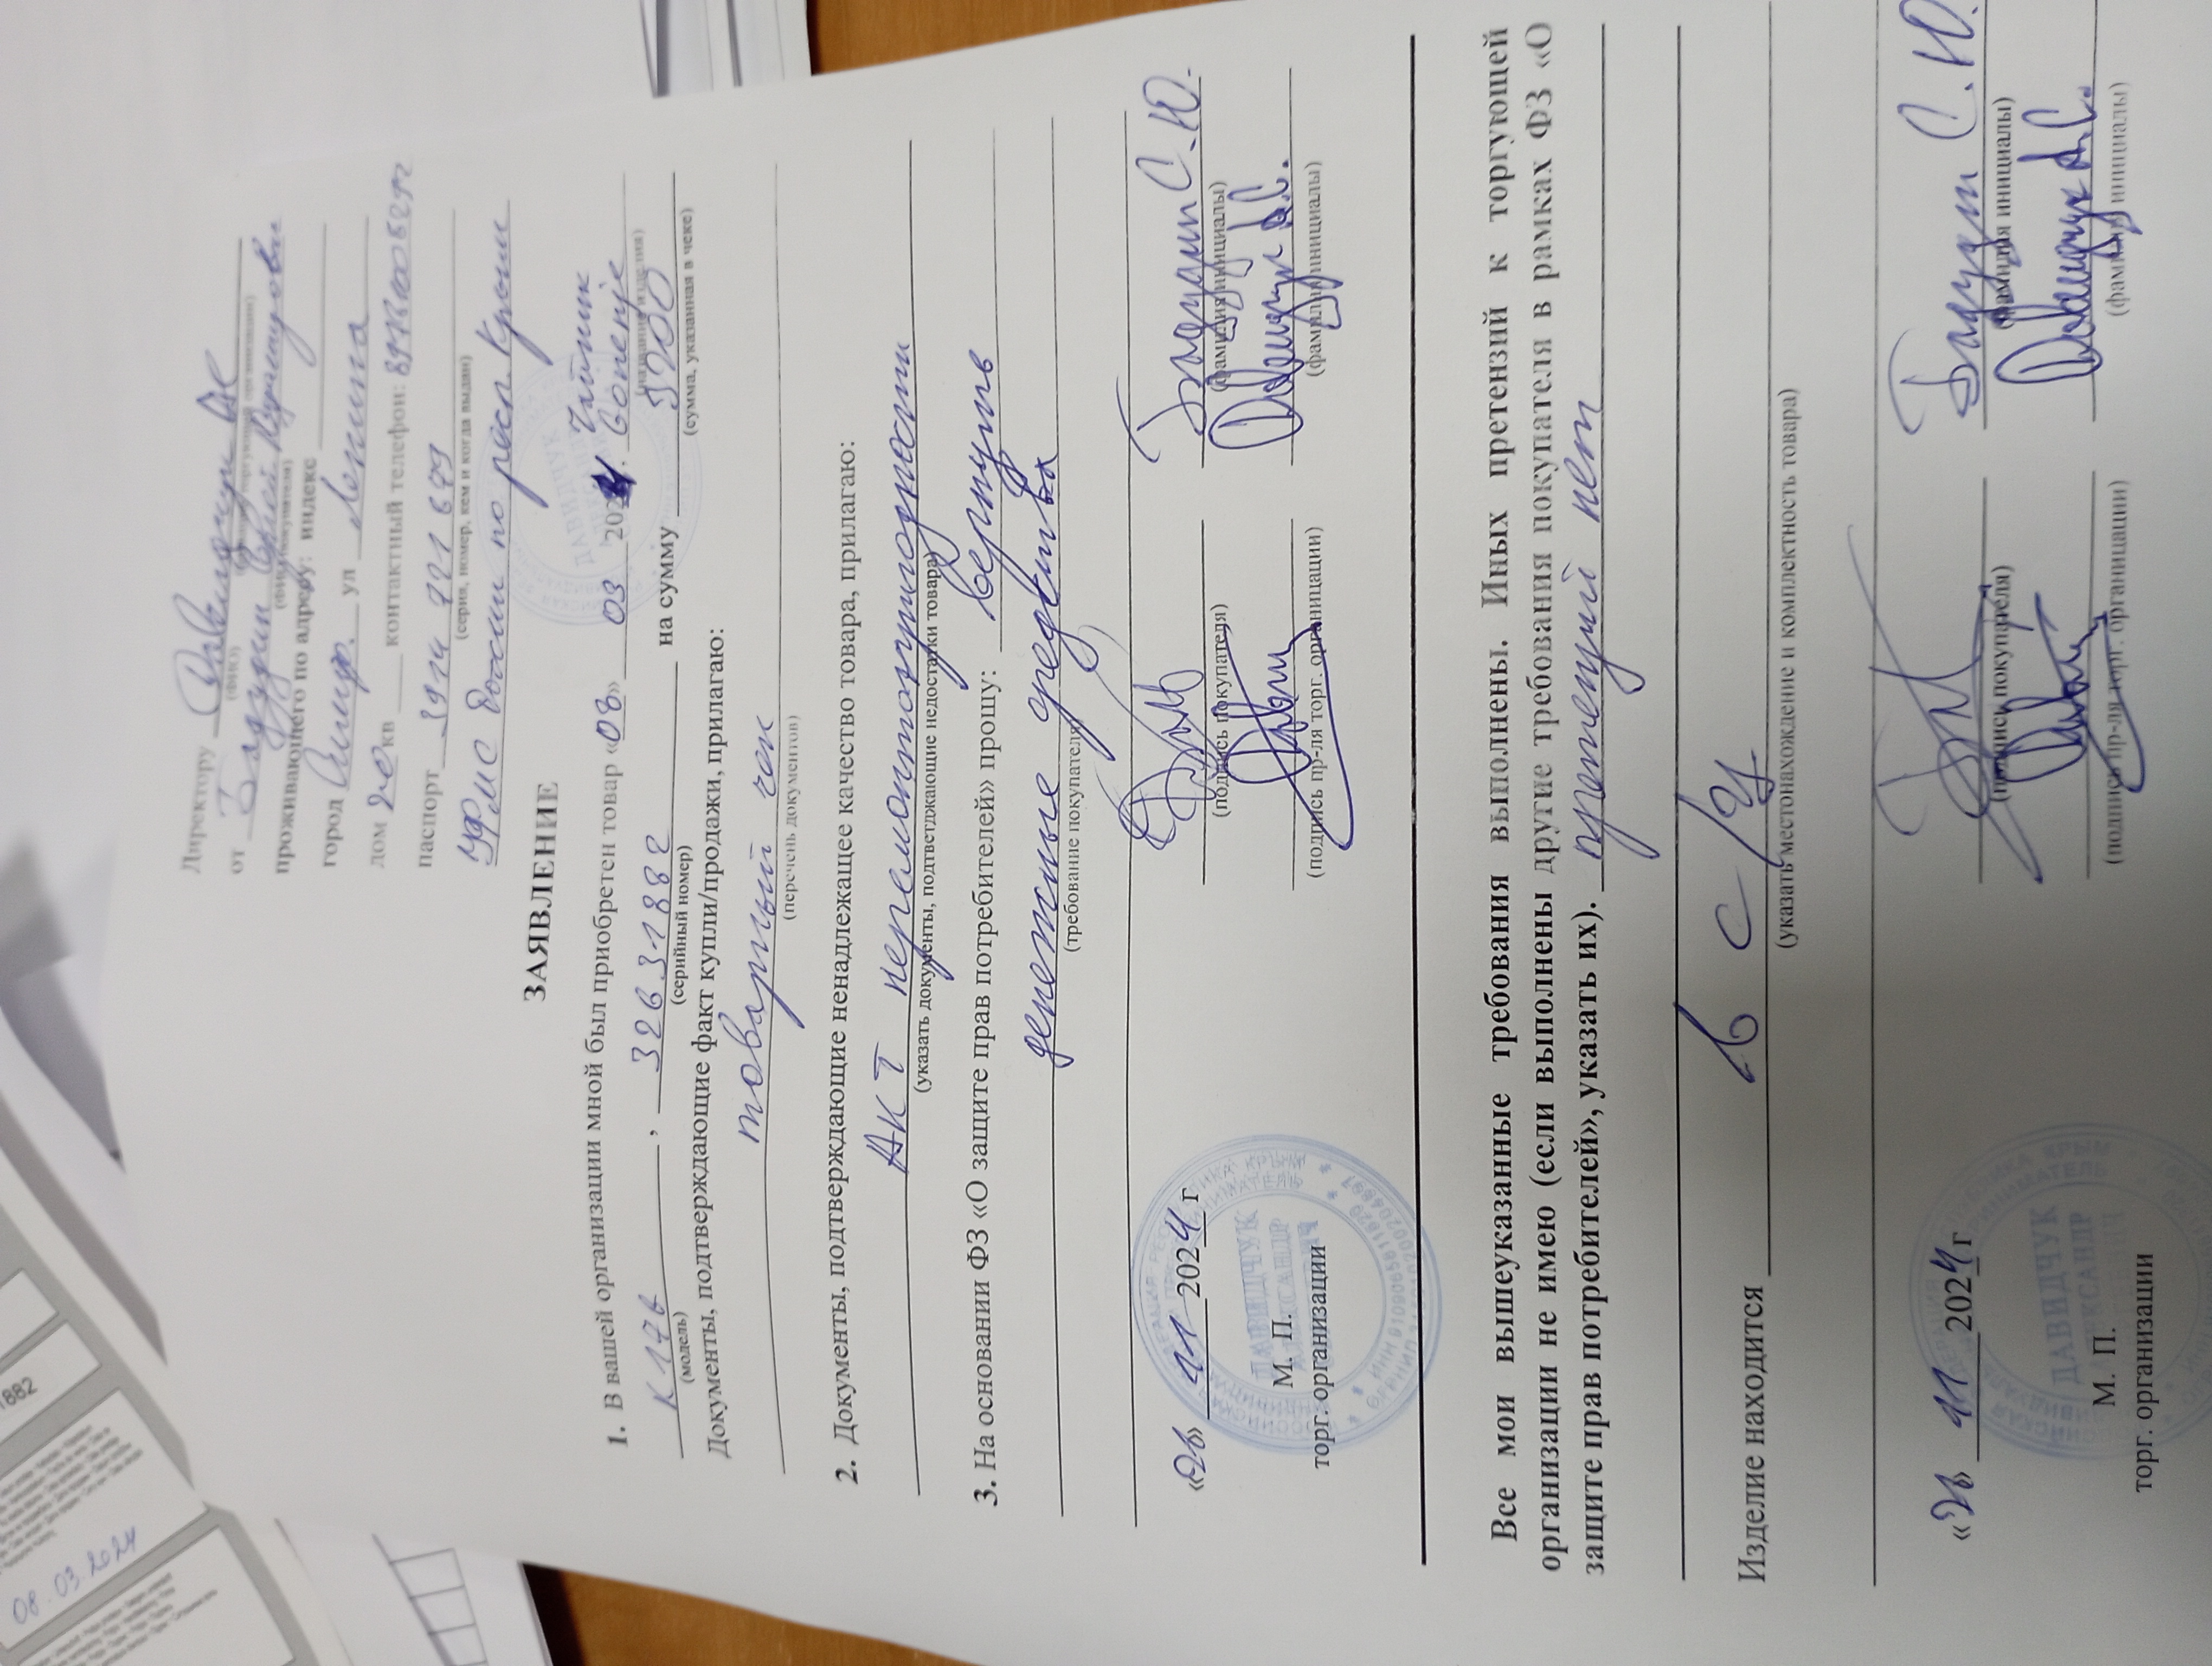 Директору Давидчук АС
(ФИО) (название торгующей организации)
от
(ФИО покупателя)
проживающего по адресу: индекс
город Симф. ул Ленина
дом кв контактный телефон:
паспорт 3914 721679
(серия, номер, кем и когда выдан)
УФМС России по респ. Крым
ЗАЯВЛЕНИЕ
1. В вашей организации мной был приобретен товар «08» 03 2024. Чайник Gorenje
(название изделия)
K17b, 32631882 на сумму
(модель) (серийный номер) (сумма, указанная в чеке)
Документы, подтверждающие факт купли/продажи, прилагаю:
товарный чек
(перечень документов)
2. Документы, подтверждающие ненадлежащее качество товара, прилагаю:
АКТ неремонтопригодности
(указать документы, подтветджающие недостатки товара)
3. На основании ФЗ «О защите прав потребителей» прошу: вернуть
денежные средства
(требование покупателя)
« » 11 2024 г С.Ю.
(подпись покупателя) (фамилия инициалы)
М. П. Давидчук А.С.
торг. организации (подпись пр-ля торг. организации) (фамилия инициалы)
Все мои вышеуказанные требования выполнены. Иных претензий к торгующей
организации не имею (если выполнены другие требования покупателя в рамках ФЗ «О
защите прав потребителей», указать их). претензий нет
Изделие находится в С/Ц
(указать местонахождение и комплектность товара)
« » 11 2024 г С.Ю.
(подпись покупателя) (фамилия инициалы)
М. П. Давидчук А.С.
торг. организации (подпись пр-ля торг. организации) (фамилия инициалы)
ДАВИДЧУК
АЛЕКСАНДР
1882
08.03.2024